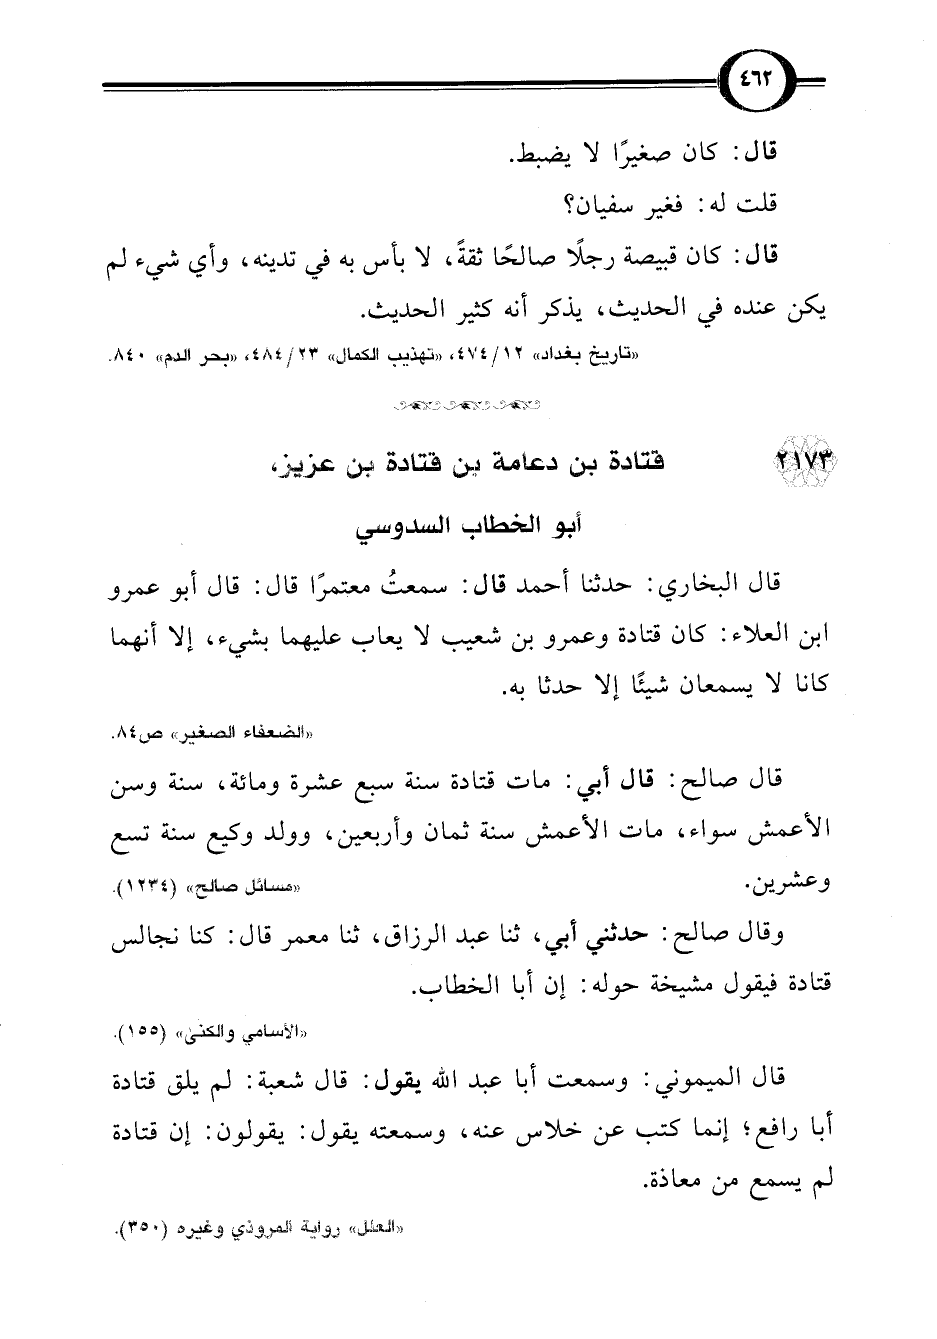 ٤٦٢
قال: كان صغيرًا لا يضبط.
قلت له: فغير سفيان؟
قال: كان قبيصة رجلًا صالحًا ثقةً، لا بأس به في تدينه، وأي شيء لم
يكن عنده في الحديث، يذكر أنه كثير الحديث.
«تاريخ بغداد» ١٢/ ٤٧٤، «تهذيب الكمال» ٢٣/ ٤٨٤، «بحر الدم» ٨٤٠.
٢١٧٣ قتادة بن دعامة بن قتادة بن عزيز،
أبو الخطاب السدوسي
قال البخاري: حدثنا أحمد قال: سمعتُ معتمرًا قال: قال أبو عمرو
ابن العلاء: كان قتادة وعمرو بن شعيب لا يعاب عليهما بشيء، إلا أنهما
كانا لا يسمعان شيئًا إلا حدثا به.
«الضعفاء الصغير» ص٨٤.
قال صالح: قال أبي: مات قتادة سنة سبع عشرة ومائة، سنة وسن
الأعمش سواء، مات الأعمش سنة ثمان وأربعين، وولد وكيع سنة تسع
وعشرين. «مسائل صالح» (١٢٣٤).
وقال صالح: حدثني أبي، ثنا عبد الرزاق، ثنا معمر قال: كنا نجالس
قتادة فيقول مشيخة حوله: إن أبا الخطاب.
«الأسامي والكنىٰ» (١٥٥).
قال الميموني: وسمعت أبا عبد الله يقول: قال شعبة: لم يلق قتادة
أبا رافع؛ إنما كتب عن خلاس عنه، وسمعته يقول: يقولون: إن قتادة
لم يسمع من معاذة.
«العلل» رواية المروذي وغيره (٣٥٠).